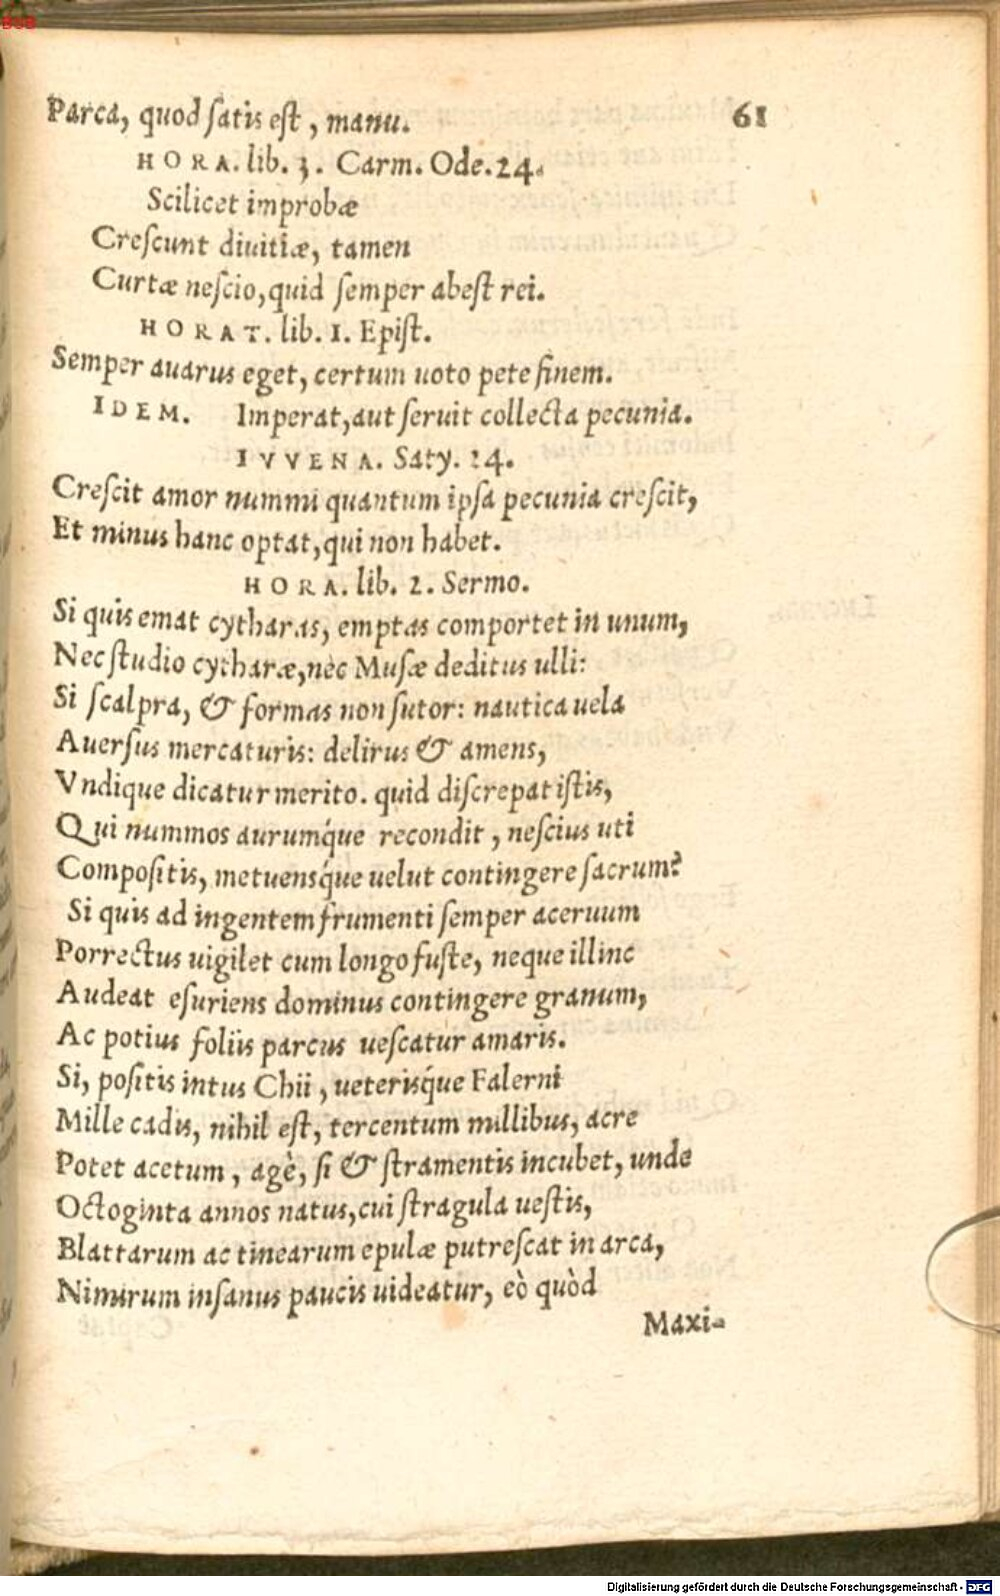 BSB
Parca, quod satis est, manu. 61
HORA. lib. 3. Carm. Ode. 24.
Scilicet improbæ
Crescunt diuitiæ, tamen
Curtæ nescio, quid semper abest rei.
HORAT. lib. 1. Epist.
Semper auarus eget, certum uoto pete finem.
IDEM. Imperat, aut seruit collecta pecunia.
IVVENA. Saty. 14.
Crescit amor nummi quantum ipsa pecunia crescit,
Et minus hanc optat, qui non habet.
HORA. lib. 2. Sermo.
Si quis emat cytharas, emptas comportet in unum,
Nec studio cytharæ, nec Musæ deditus ulli:
Si scalpra, & formas non sutor: nautica uela
Auersus mercaturis: delirus & amens,
Vndique dicatur merito. quid discrepat istis,
Qui nummos aurumq́ue recondit, nescius uti
Compositis, metuensq́ue uelut contingere sacrum?
Si quis ad ingentem frumenti semper aceruum
Porrectus uigilet cum longo fuste, neque illinc
Audeat esuriens dominus contingere granum,
Ac potius foliis parcus uescatur amaris.
Si, positis intus Chii, ueterisq́ue Falerni
Mille cadis, nihil est, tercentum millibus, acre
Potet acetum, agè, si & stramentis incubet, unde
Octoginta annos natus, cui stragula uestis,
Blattarum ac tinearum epulæ putrescat in arca,
Nimirum insanus paucis uideatur, eò quòd
Maxi-
Digitalisierung gefördert durch die Deutsche Forschungsgemeinschaft - DFG